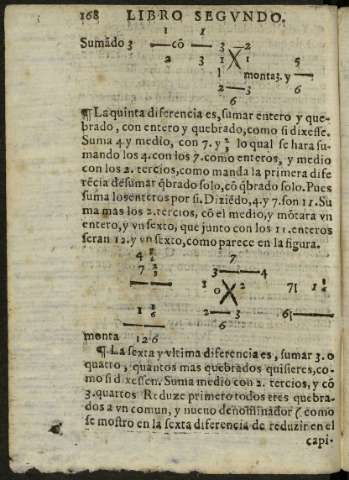 168 LIBRO SEGVNDO.
1 1
Sumãdo 3 — cõ — 3 — 2
2 3 1 X 1 5
1 monta 3. y —
2 — 3 6
6
¶ La quinta diferencia es, sumar entero y que-
brado, con entero y quebrado, como si dixesse.
Suma 4 y medio, con 7. y 2/3 lo qual se hara su-
mando los 4. con los 7. como enteros, y medio
con los 2. tercios, como manda la primera dife
rẽcia de sumar q̃brado solo, cõ q̃brado solo. Pues
suma los enteros por si. Diziẽdo, 4. y 7. son 11. Su
ma mas los 2. tercios, cõ el medio, y mõtara vn
entero, y vn sexto, que junto con los 11. enteros
seran 12. y vn sexto, como parece en la figura.
4 1/2 7
7 2/3 3 — 4
1 0 X 2 7| 1 1/6
1 1/6 2 — 3 6|
6
monta 12 6
¶ La sexta y vltima diferencia es, sumar 3. o
quatro, quantos mas quebrados quisieres, co-
mo si dixessen. Suma medio con 2. tercios, y cõ
3. quartos Reduze primero todos tres quebra-
dos a vn comun, y nueuo denominador (como
se mostro en la sexta diferencia de reduzir en el
capi-